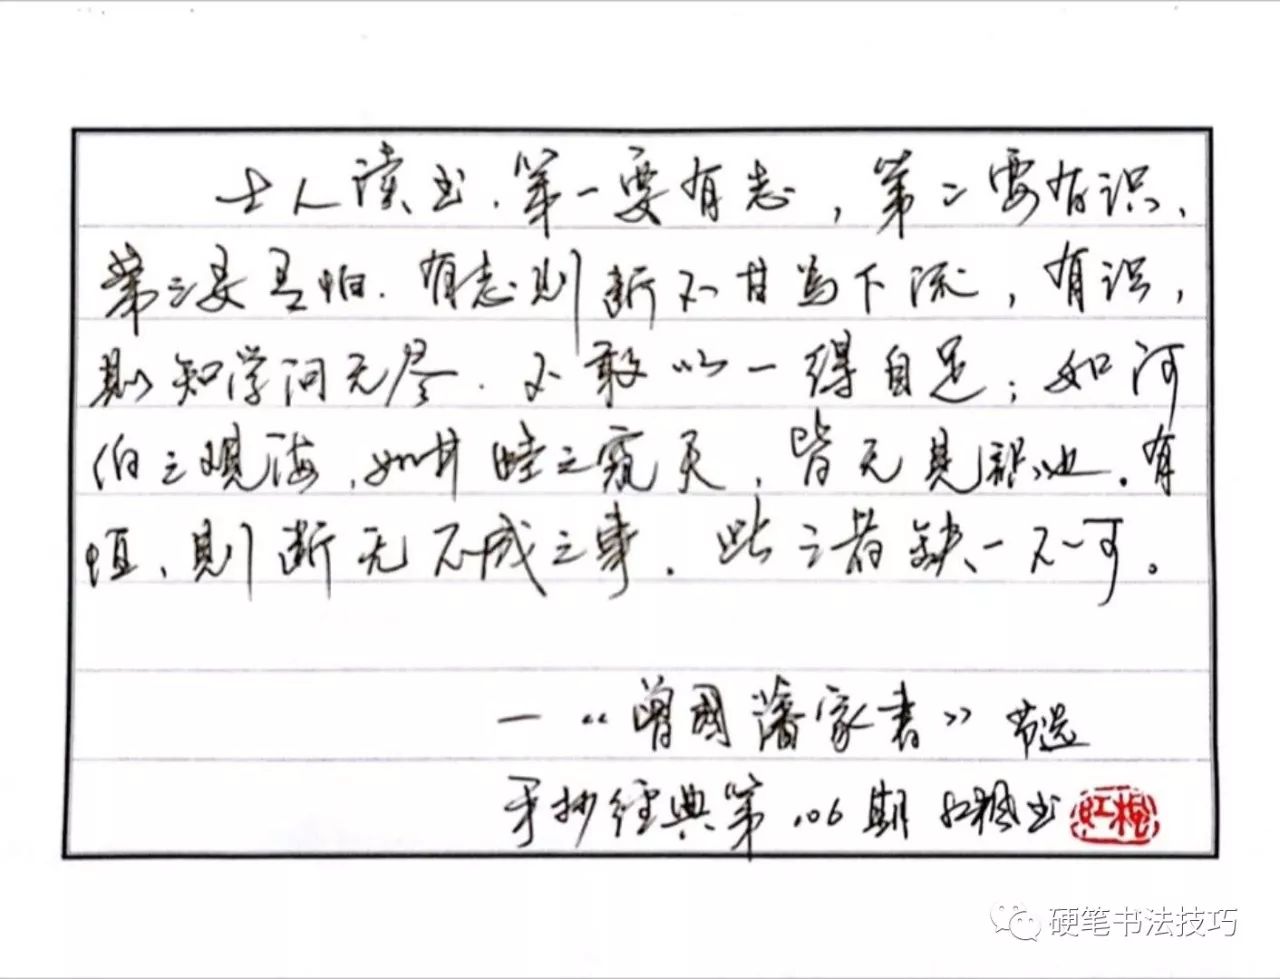 士人读书.第一要有志,第二要有识、
第三要有恒.有志则断不甘为下流,有识,
则知学问无尽.不敢以一得自足;如河
伯之观海,如井蛙之窥天,皆无见识也.有
恒、则断无不成之事.此三者缺一不可。
一“曾国藩家书”节选
手抄经典第106期 红枫书
红枫
硬笔书法技巧